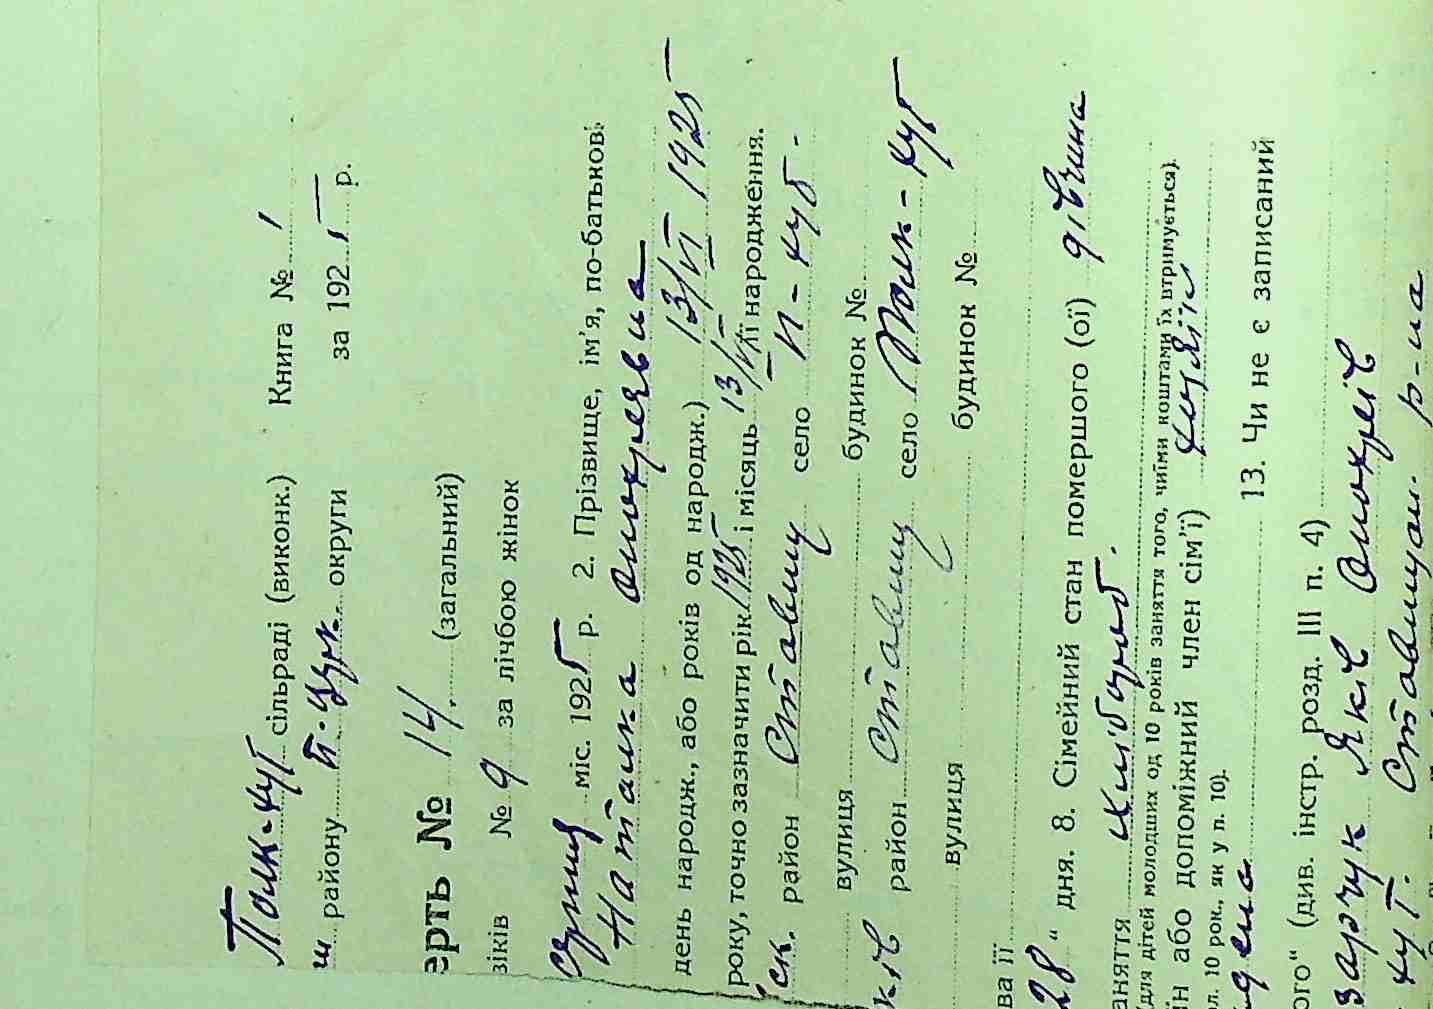 Полк-кут сільраді (виконк.) Книга № 1
ш району П-Укр. округи за 1925 р.
ерть № 14. (загальний)
віків № 9 за лічбою жінок
міс. 1925 р. 2. Прізвище, ім'я, по-батькові
Наталка Онопрієвна
день народж., або років од народж.) 13/VI 1925
року, точно зазначити рік 1925 і місяць 13/VI її народження.
ськ. район Ставищ село П-кут-
вулиця будинок №
Київ район Ставищ село Полк-кут
вулиця будинок №
ва її
28 “ дня. 8. Сімейний стан померлого (ої) дівчина
аняття хлібороб.
(для дітей молодших од 10 років заняття того, чиїми коштами їх втримується).
їн або допоміжний член сім'ї) хазяїн
ол. 10 рок., як у п. 10).
13. Чи не є записаний
ого“ (див. інстр. розд. III п. 4)
зарчук Яків Онопріїв
кут. Ставищан. р-на